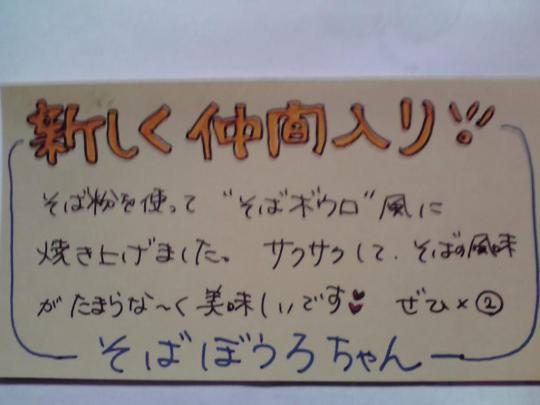 新しく仲間入り!!
そば粉を使って “そばボウロ”風に
焼き上げました。 サクサクして、そばの風味
がたまらな〜く美味しいです♥ ぜひ×②
そばぼうろちゃん